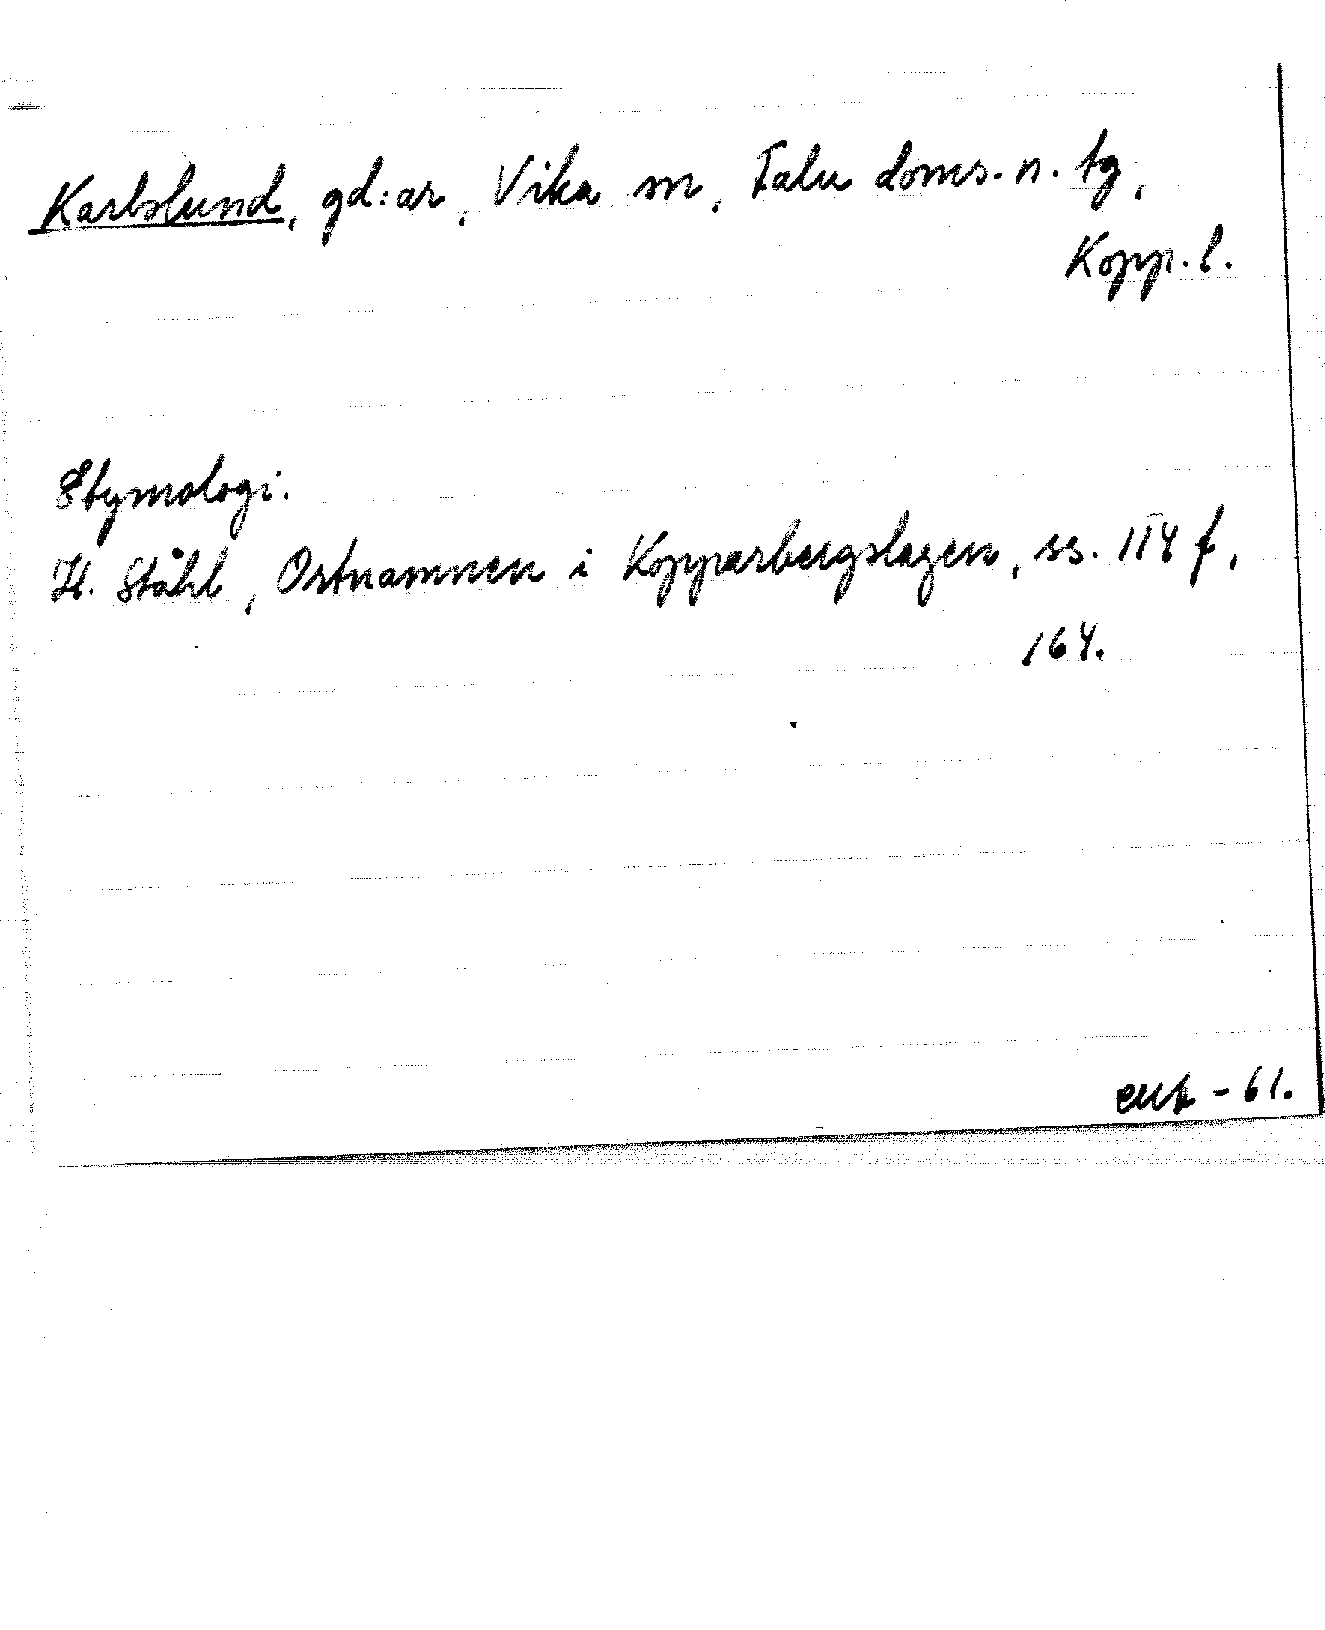 Karlslund, gd:ar, Vika sn, Falu doms. n. tg,
Kopp. l.
Etymologi.
H. Ståhl, Ortnamnen i Kopparbergslagen, ss. 114 f,
164.
- 61.